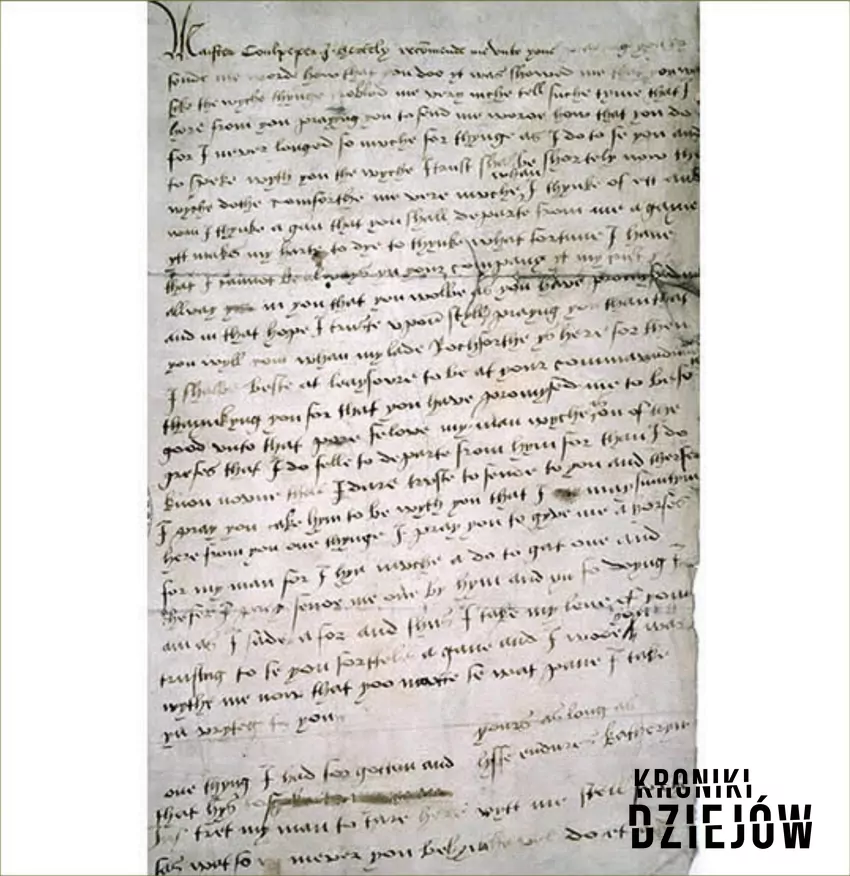 Maister Coulpeper I hertely recomende me unto youe praying you to
sende me worde how that you doo yt was showed me that you was
seke the wyche thynge trobled me very muche tell suche tyme that I
here from you praying you to send me worde how that you do
for I never longed so muche for thynge as I do to se you and
to speke wyth you the wyche I trust shal be shortely now the
wyche dothe comforthe me very muche whan I thynke of ett and
wan I thynke agan that you shall departe from me agayne
ytt makes my harte to dye to thynke what fortune I have
that I cannot be always yn your company yt my trust ys
allway in you that you wolbe as you have promysed me
and in that hope I truste upon styll prayng you than that
you wyll com whan my lade Rochforthe ys here for then
I shalbe beste at leaysoure to be at your commaundment
thannkyng you for that you have promysed me to be so
good unto that pore felowe my man wyche ys on of the
grefes that I do felle to departe from hym for than I do
know noone that I dare truste to sende to you and therfor
I pray you take hym to be wyth you that I may sumtym
here from you one thynge I pray you to gyve me a horse
for my man for I hyd muche a do to gat one and
therfer I pray sende me one by hym and yn so doyng I
am as I sade afor and thus I take my leve of you
trusting to se you shorttele agane and I wode you was
wythe me now that yoo maite se wat pane I take
yn wryteg to you
yours as long as
lyffe endures Katheryn
one thyng I had forgotten and
that hys to
tret my man to tare here wytt me still
sas wat so mever you
KRONIKI
DZIEJÓW